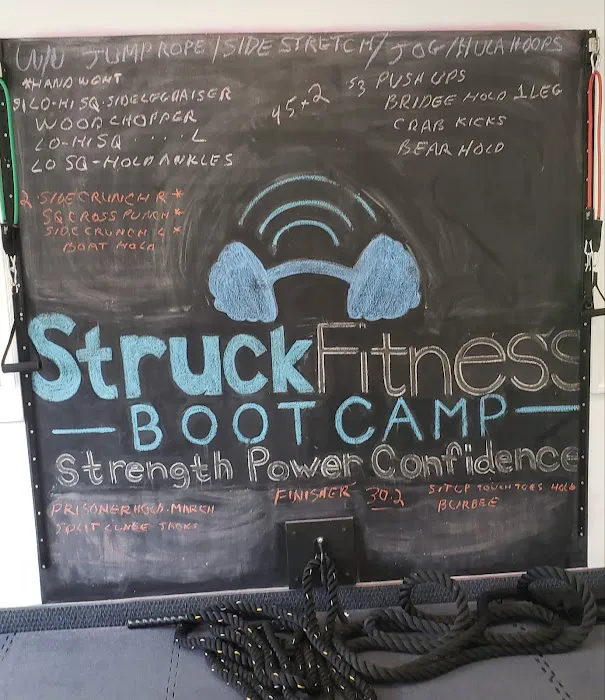 W/U JUMPROPE/SIDE STRETCH/JOG/HULA HOOPS
*HANDWGHT
S1 LO-HI SQ-SIDELEGRAISE R
WOODCHOPPER
LO-HI SQ .... L
LO SQ-HOLD ANKLES
45x2
S3 PUSH UPS
BRIDGE HOLD 1 LEG
CRAB KICKS
BEAR HOLD
2 SIDECRUNCH R *
SQ CROSS PUNCH *
SIDECRUNCH L *
BOAT HOLD
StruckFitness
BOOT CAMP
Strength Power Confidence
FINISHER 30.2
PRISONERHOLD-MARCH
SPLIT LUNGE JACKS
SIT UP TOUCH TOES HOLD
BURBEE